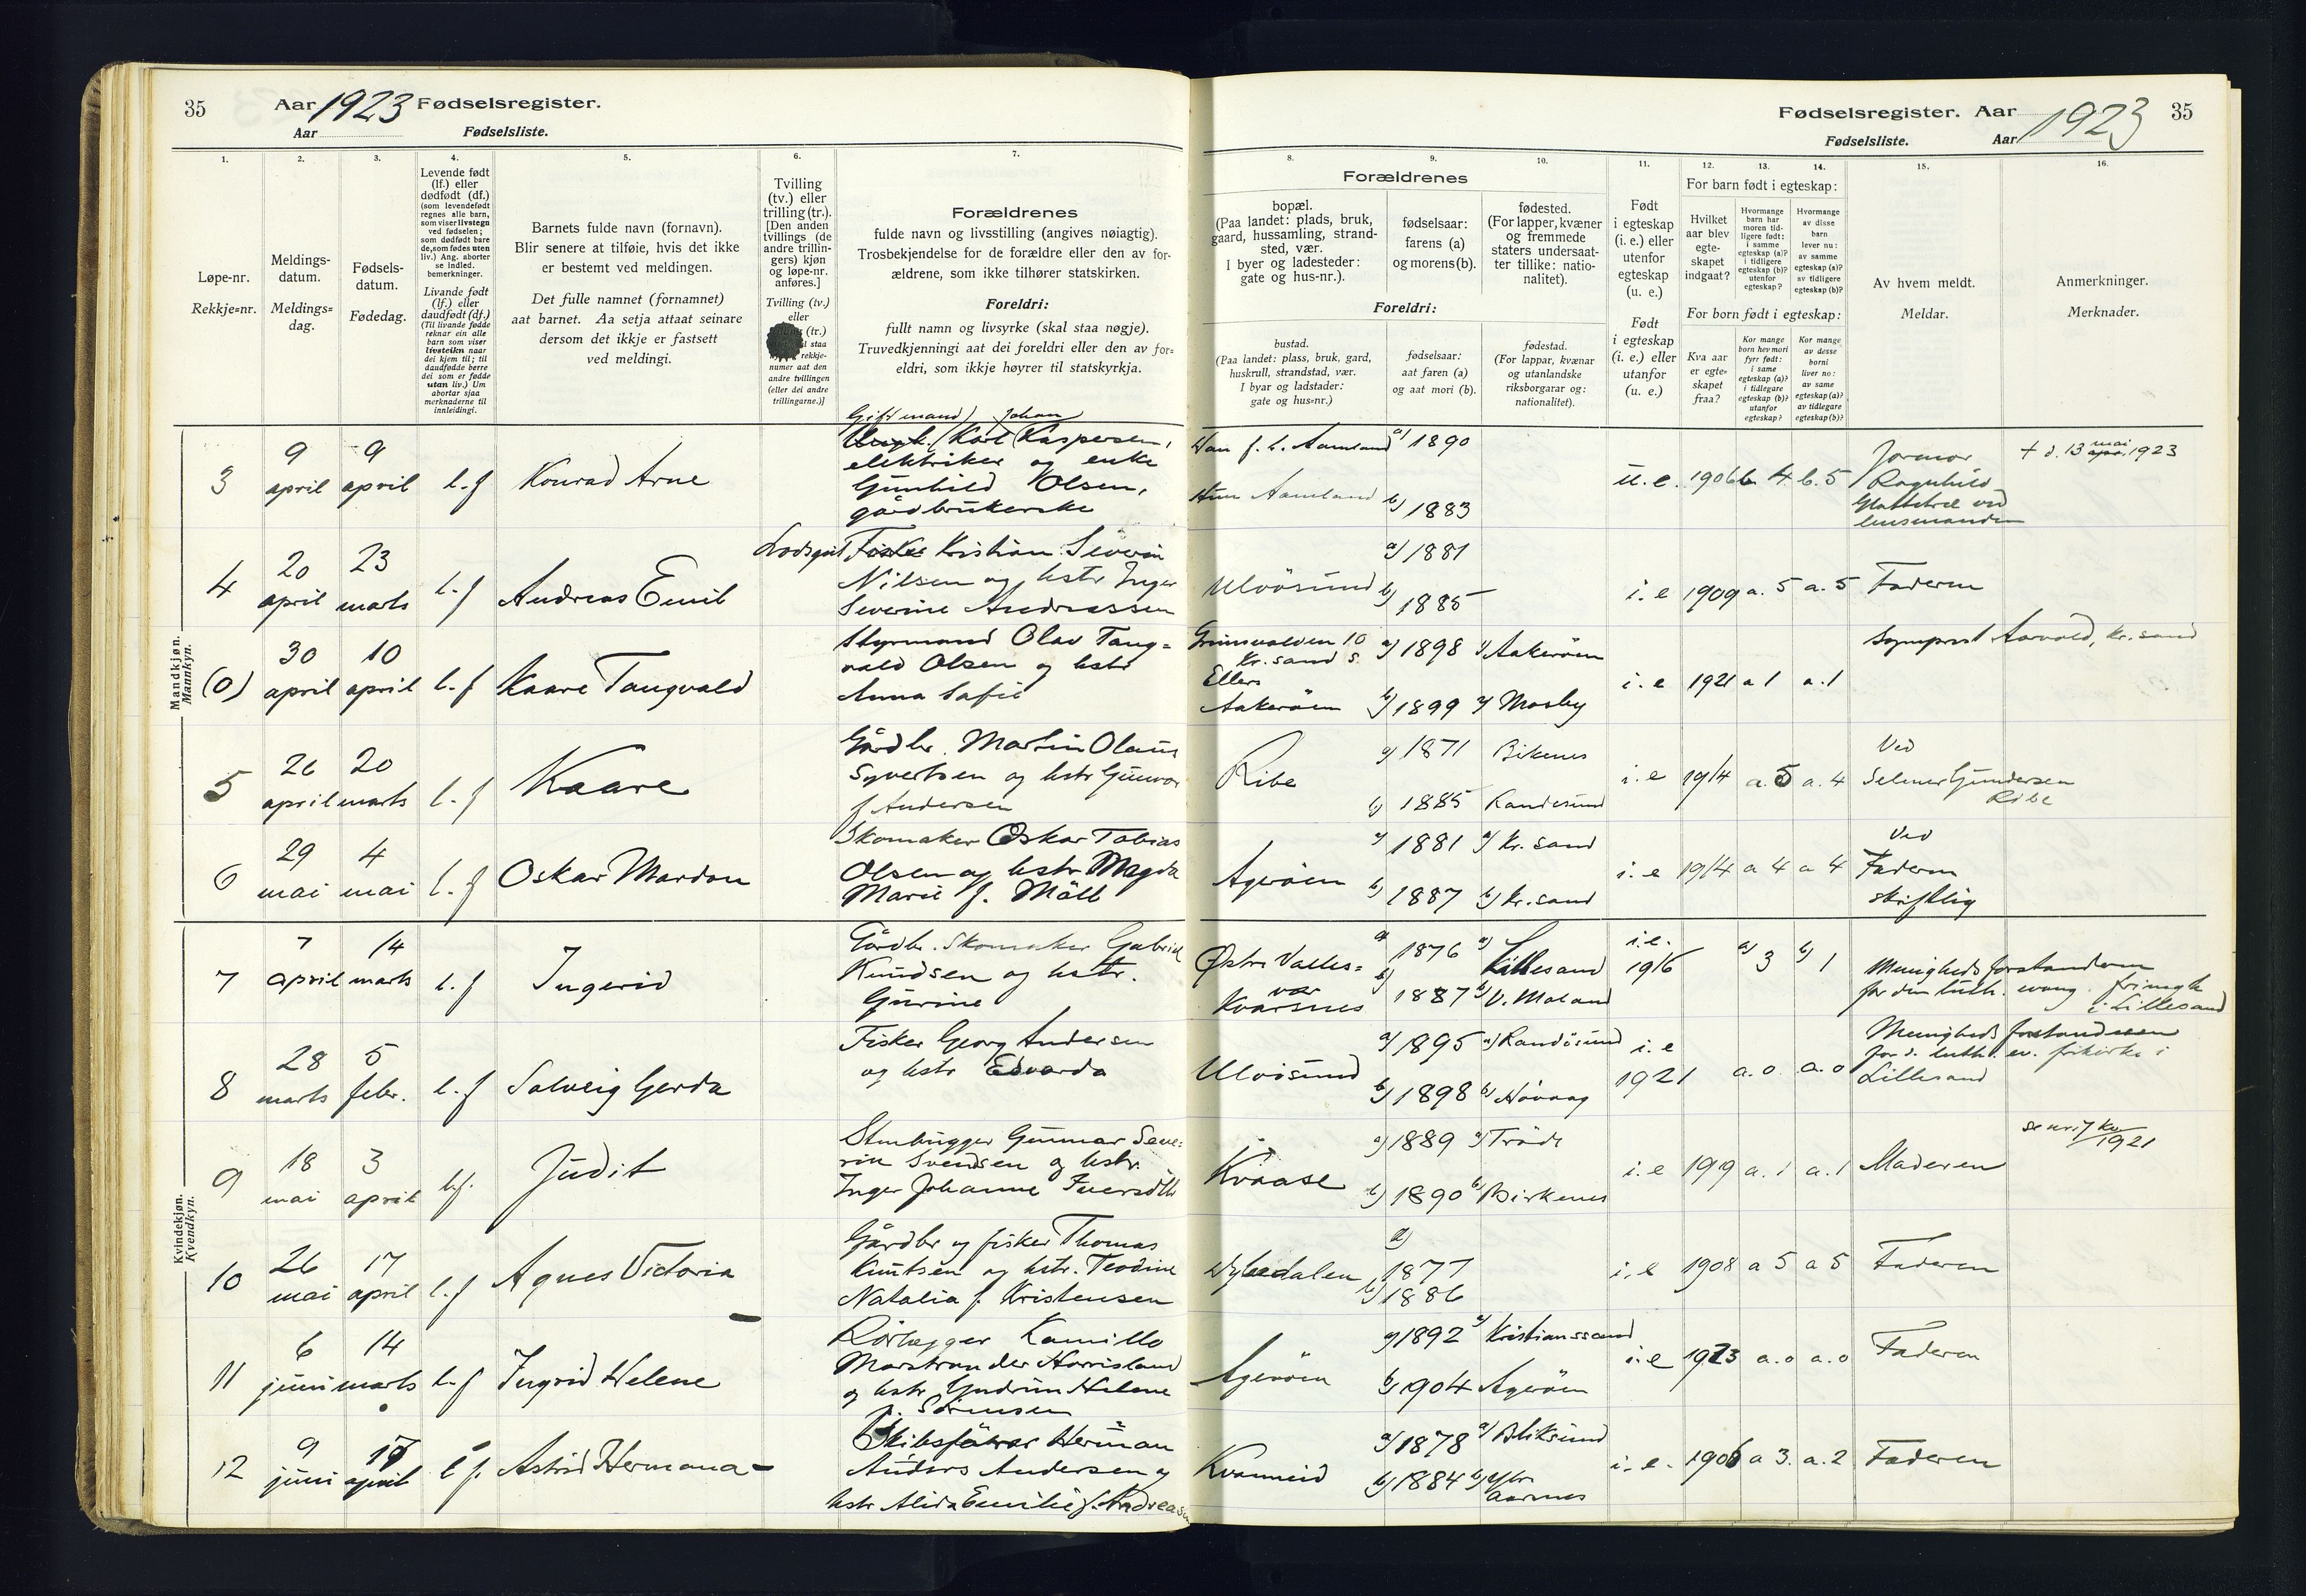 35 Aar 1923 Fødselsregister.
Aar Fødselsliste.
Fødselsregister. Aar 1923 35
Fødselsliste. Aar
1. 2. 3. 4. 5. 6. 7.
Løpe-nr.
Rekkje=nr.
Meldings-
datum.
Meldings=
dag.
Fødsels-
datum.
Fødedag.
Levende født
(lf.) eller
dødfødt (df.)
(som levendefødt
regnes alle barn,
som viser livstegn
ved fødselen;
som dødfødt bare
de, som fødes uten
liv.) Ang. aborter
se indled.
bemerkninger.
Livande født
(lf.) eller
daudfødt (df.)
(Til livande fødde
reknar ein alle
barn som viser
livsteikn naar
dei kjem til; til
daudfødde berre
dei som er fødde
utan liv.) Um
abortar sjaa
merknaderne til
innleidingi.
Barnets fulde navn (fornavn).
Blir senere at tilføie, hvis det ikke
er bestemt ved meldingen.
Det fulle namnet (fornamnet)
aat barnet. Aa setja attaat seinare
dersom det ikkje er fastsett
ved meldingi.
Tvilling
(tv.) eller
trilling (tr.).
[Den anden
tvillings (de
andre trillin-
gers) kjøn
og løpe-nr.
anføres.]
Tvilling (tv.)
eller
(tr.)
staa
rekkje-
numer aat den
andre tvillingen
(eller dei andre
trillingarne.)]
Forældrenes
fulde navn og livsstilling (angives nøiagtig).
Trosbekjendelse for de forældre eller den av for-
ældrene, som ikke tilhører statskirken.
Foreldri:
fullt namn og livsyrke (skal staa nøgje).
Truvedkjenningi aat dei foreldri eller den av for=
eldri, som ikkje høyrer til statskyrkja.
8. 9. 10. 11. 12. 13. 14. 15. 16.
Forældrenes
bopæl.
(Paa landet: plads, bruk,
gaard, hussamling, strand-
sted, vær.
I byer og ladesteder:
gate og hus-nr.).
fødselsaar:
farens (a)
og morens (b).
fødested.
(For lapper, kvæner
og fremmede
staters undersaat-
ter tillike: natio-
nalitet).
Foreldri:
bustad.
(Paa landet: plass, bruk, gard,
huskrull, strandstad, vær.
I byar og ladstader:
gate og hus=nr.)
fødselsaar:
aat faren (a)
og aat mori (b).
fødestad.
(For lappar, kvænar
og utanlandske
riksborgarar og:
nationalitet).
Født
i egteskap
(i. e.) eller
utenfor
egteskap
(u. e.)
Født
i egteskap
(i. e.) eller
utanfor
(u. e.)
For barn født i egteskap:
Hvilket
aar blev
egte-
skapet
indgaat?
Hvormange
barn har
moren tid-
ligere født:
i samme
egteskap (a)?
i tidligere
egteskap (b)?
utenfor
egteskap?
Hvormange
av disse
barn
lever nu:
av samme
egteskap (a)?
av tidligere
egteskap (b)?
For born født i egteskap:
Kva aar
er egte=
skapet
fraa?
Kor mange
born hev mori
fyrr født:
i same
egteskap (a)?
i tidlegare
egteskap (b)?
utanfor
egteskap?
Kor mange
av desse
borni
liver no:
av same
egteskap (a)?
av tidlegare
egteskap (b)?
Av hvem meldt.
Meldar.
Anmerkninger.
Merknader.
Mandkjøn.
Mannkyn.
Gift mand Johan
3 9 april 9 april l.f Konrad Arne
Karl Kaspersen,
elektriker og enke
Gunhild Olsen,
gårdbrukerske
Han f. t. Aamland a) 1890
Hun Aamland b) 1883
u.e. 1906 b 4 b. 5
Jormor
Ragnhild
ved
lensmanden
+ d. 13 mai 1923
4 20 april 23 marts l.f Andreas Emil
Lodsgut Fisker Kristian Severin
Nilsen og hstr Inger
Severine Andreassen
Ulvøsund a) 1881
b) 1885
i.e 1909 a. 5 a. 5 Faderen
(0) 30 april 10 april l.f Kaare Tangvald
Styrmand Olav Tang=
vald Olsen og hstr
Anna Sofie
Grimsvolden 10
Kr.sand S.
Ellers
Aakerøen
a) 1898 a) Aakerøen
b) 1899 b) Mosby
i.e 1921 a 1 a. 1
Sogneprest Aavold, Kr.sand
5 26 april 20 marts l.f Kaare
Gårdbr. Martin Olaus
Syvertsen og hstr Gunvor
f Andersen
Ribe a) 1871 Birkenes
b) 1885 Randesund
i.e 1914 a. 5 a. 4
Ved
Selmer Gundersen
Ribe
6 29 mai 4 mai l.f Oskar Mardon
Skomaker Oskar Tobias
Olsen og hstr Magda
Marie f. Møll
Agerøen a) 1881 a) Kr.sand
b) 1887 b) Kr.sand
i.e 1914 a 4 a 4
Ved
Faderen
skriftlig
Kvindekjøn.
Kvendkyn.
7 7 april 14 marts l.f Ingerid
Gårdbr. Skomaker Gabriel
Knudsen og hstr.
Gurine
Østre Valles=
vær
Kvarsnes
a) 1876 a) Lillesand
b) 1887 b) V. Moland
i.e. 1916 a) 3 b) 1
Menighedsforstanderen
for den luth. evang. frimegh
i Lillesand
8 28 marts 5 febr. l.f Solveig Gerda
Fisker Georg Andersen
og hstr Edvarda
Ulvøsund a) 1895 a) Randøsund
b) 1898 b) Høvaag
i.e 1921 a. 0 a. 0
Menighedsforstanderen
for d. luth. ev. frikirke i
Lillesand
9 18 mai 3 april l.f. Judit
Stenhugger Gunnar Seve=
rin Svendsen og hstr.
Inger Johanne
Kvaase a) 1889 a) Trøde
b) 1890 b) Birkenes
i.e 1919 a. 1 a. 1 Moderen
1921
10 26 mai 17 april l.f Agnes Victoria
Gårdbr og fisker Thomas
Knutsen og hstr. Teodine
Natalia f. Kristensen
a) 1877
b) 1886
i.e 1908 a 5 a 5 Faderen
11 6 juni 14 marts l.f Ingrid Helene
Rørlægger Kamillo
Marstrander Harrisland
og hstr Gudrun Helene
f. Sørensen
Agerøen a) 1892 a) Kristianssand
b) 1904 Agerøen
i.e 1923 a. 0 a. 0 Faderen
12 9 juni 17 april l.f. Astrid Hermana
Skibsfører Herman
Anders Andersen og
hstr Alida Emilie f. Andreasen
Kvanneid a) 1878 a) Bliksund
b) 1884 b) Ytre
Aarnes
i.e. 1906 a 3. a. 2 Faderen